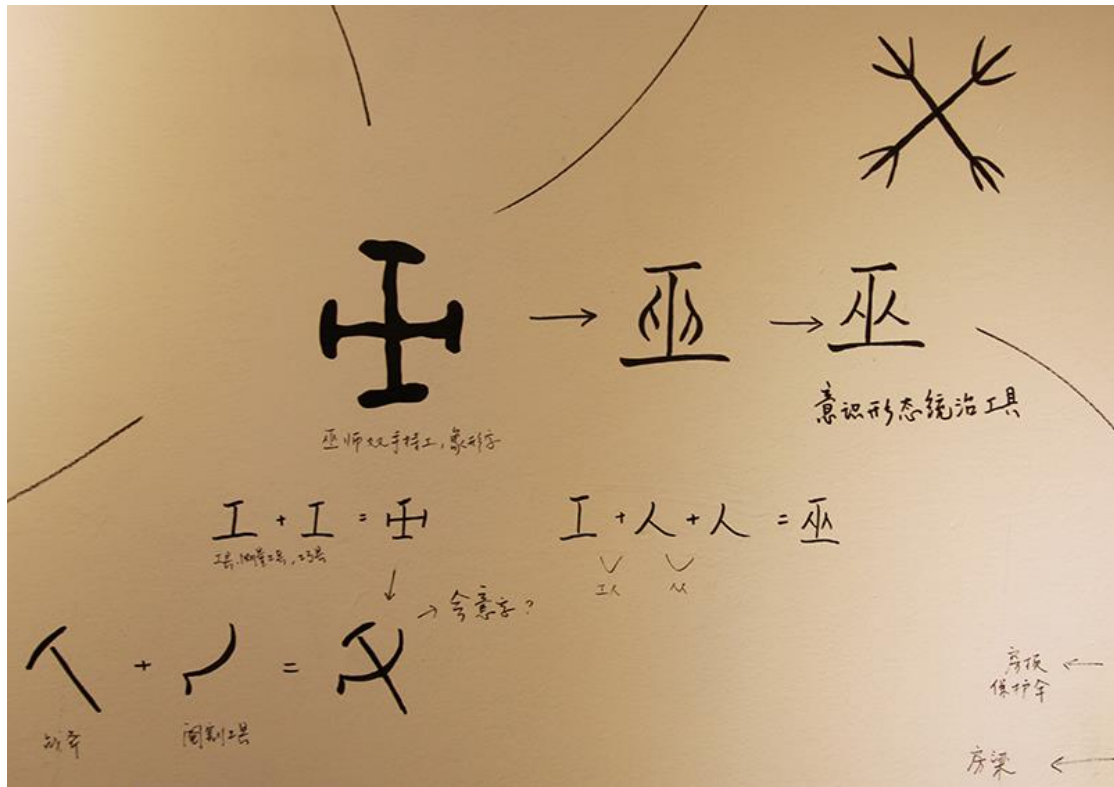 → 巫 → 巫
意识形态统治工具
巫师双手持工，象形字
工 + 工 =
工具、测量工具、巧具
工 + 人 + 人 = 巫
工人 从
→ 会意字？
+ =
战斧 阉割工具
房顶 ←
保护伞
房梁 ←